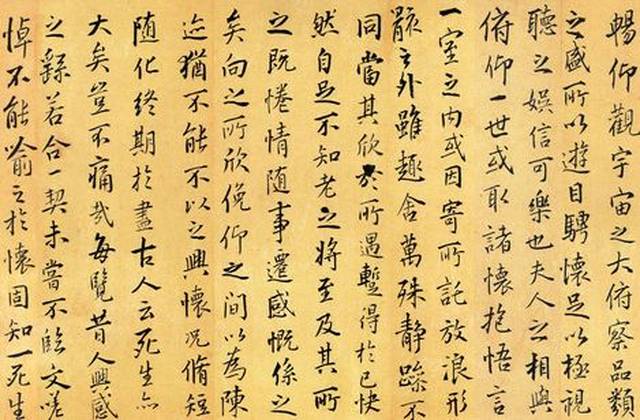 暢仰觀宇宙之大俯察品類
之盛所以遊目騁懷足以極視
聽之娛信可樂也夫人之相與
俯仰一世或取諸懷抱悟言
一室之內或因寄所託放浪形
骸之外雖趣舍萬殊靜躁不
同當其欣於所遇蹔得於己快
然自足不知老之將至及其所
之既惓情隨事遷感慨係之
矣向之所欣俛仰之間以為陳
迹猶不能不以之興懷況脩短
隨化終期於盡古人云死生亦
大矣豈不痛哉每覽昔人興感
之繇若合一契未嘗不臨文嗟
悼不能喻之於懷固知一死生